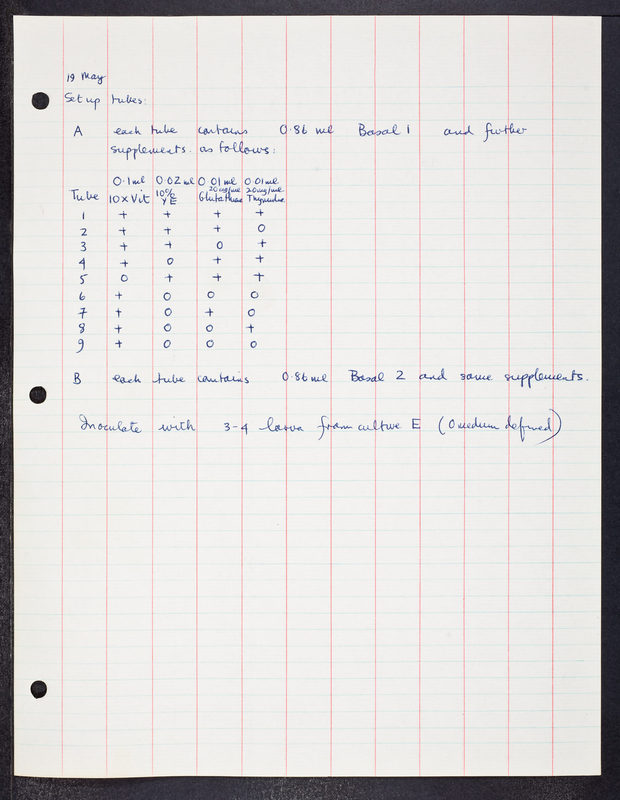 19 May
Set up tubes:
A each tube contains 0.86 ml Basal 1 and further
supplements. as follows:
0.1ml 0.02 ml 0.01ml 0.01ml
Tube 10xVit 10% YE 20mg/ml Glutathione 20mg/ml Thymidine
1 + + + +
2 + + + 0
3 + + 0 +
4 + 0 + +
5 0 + + +
6 + 0 0 0
7 + 0 + 0
8 + 0 0 +
9 + 0 0 0
B each tube contains 0.86 ml Basal 2 and same supplements.
Inoculate with 3-4 larva from culture E (0 medium defined)